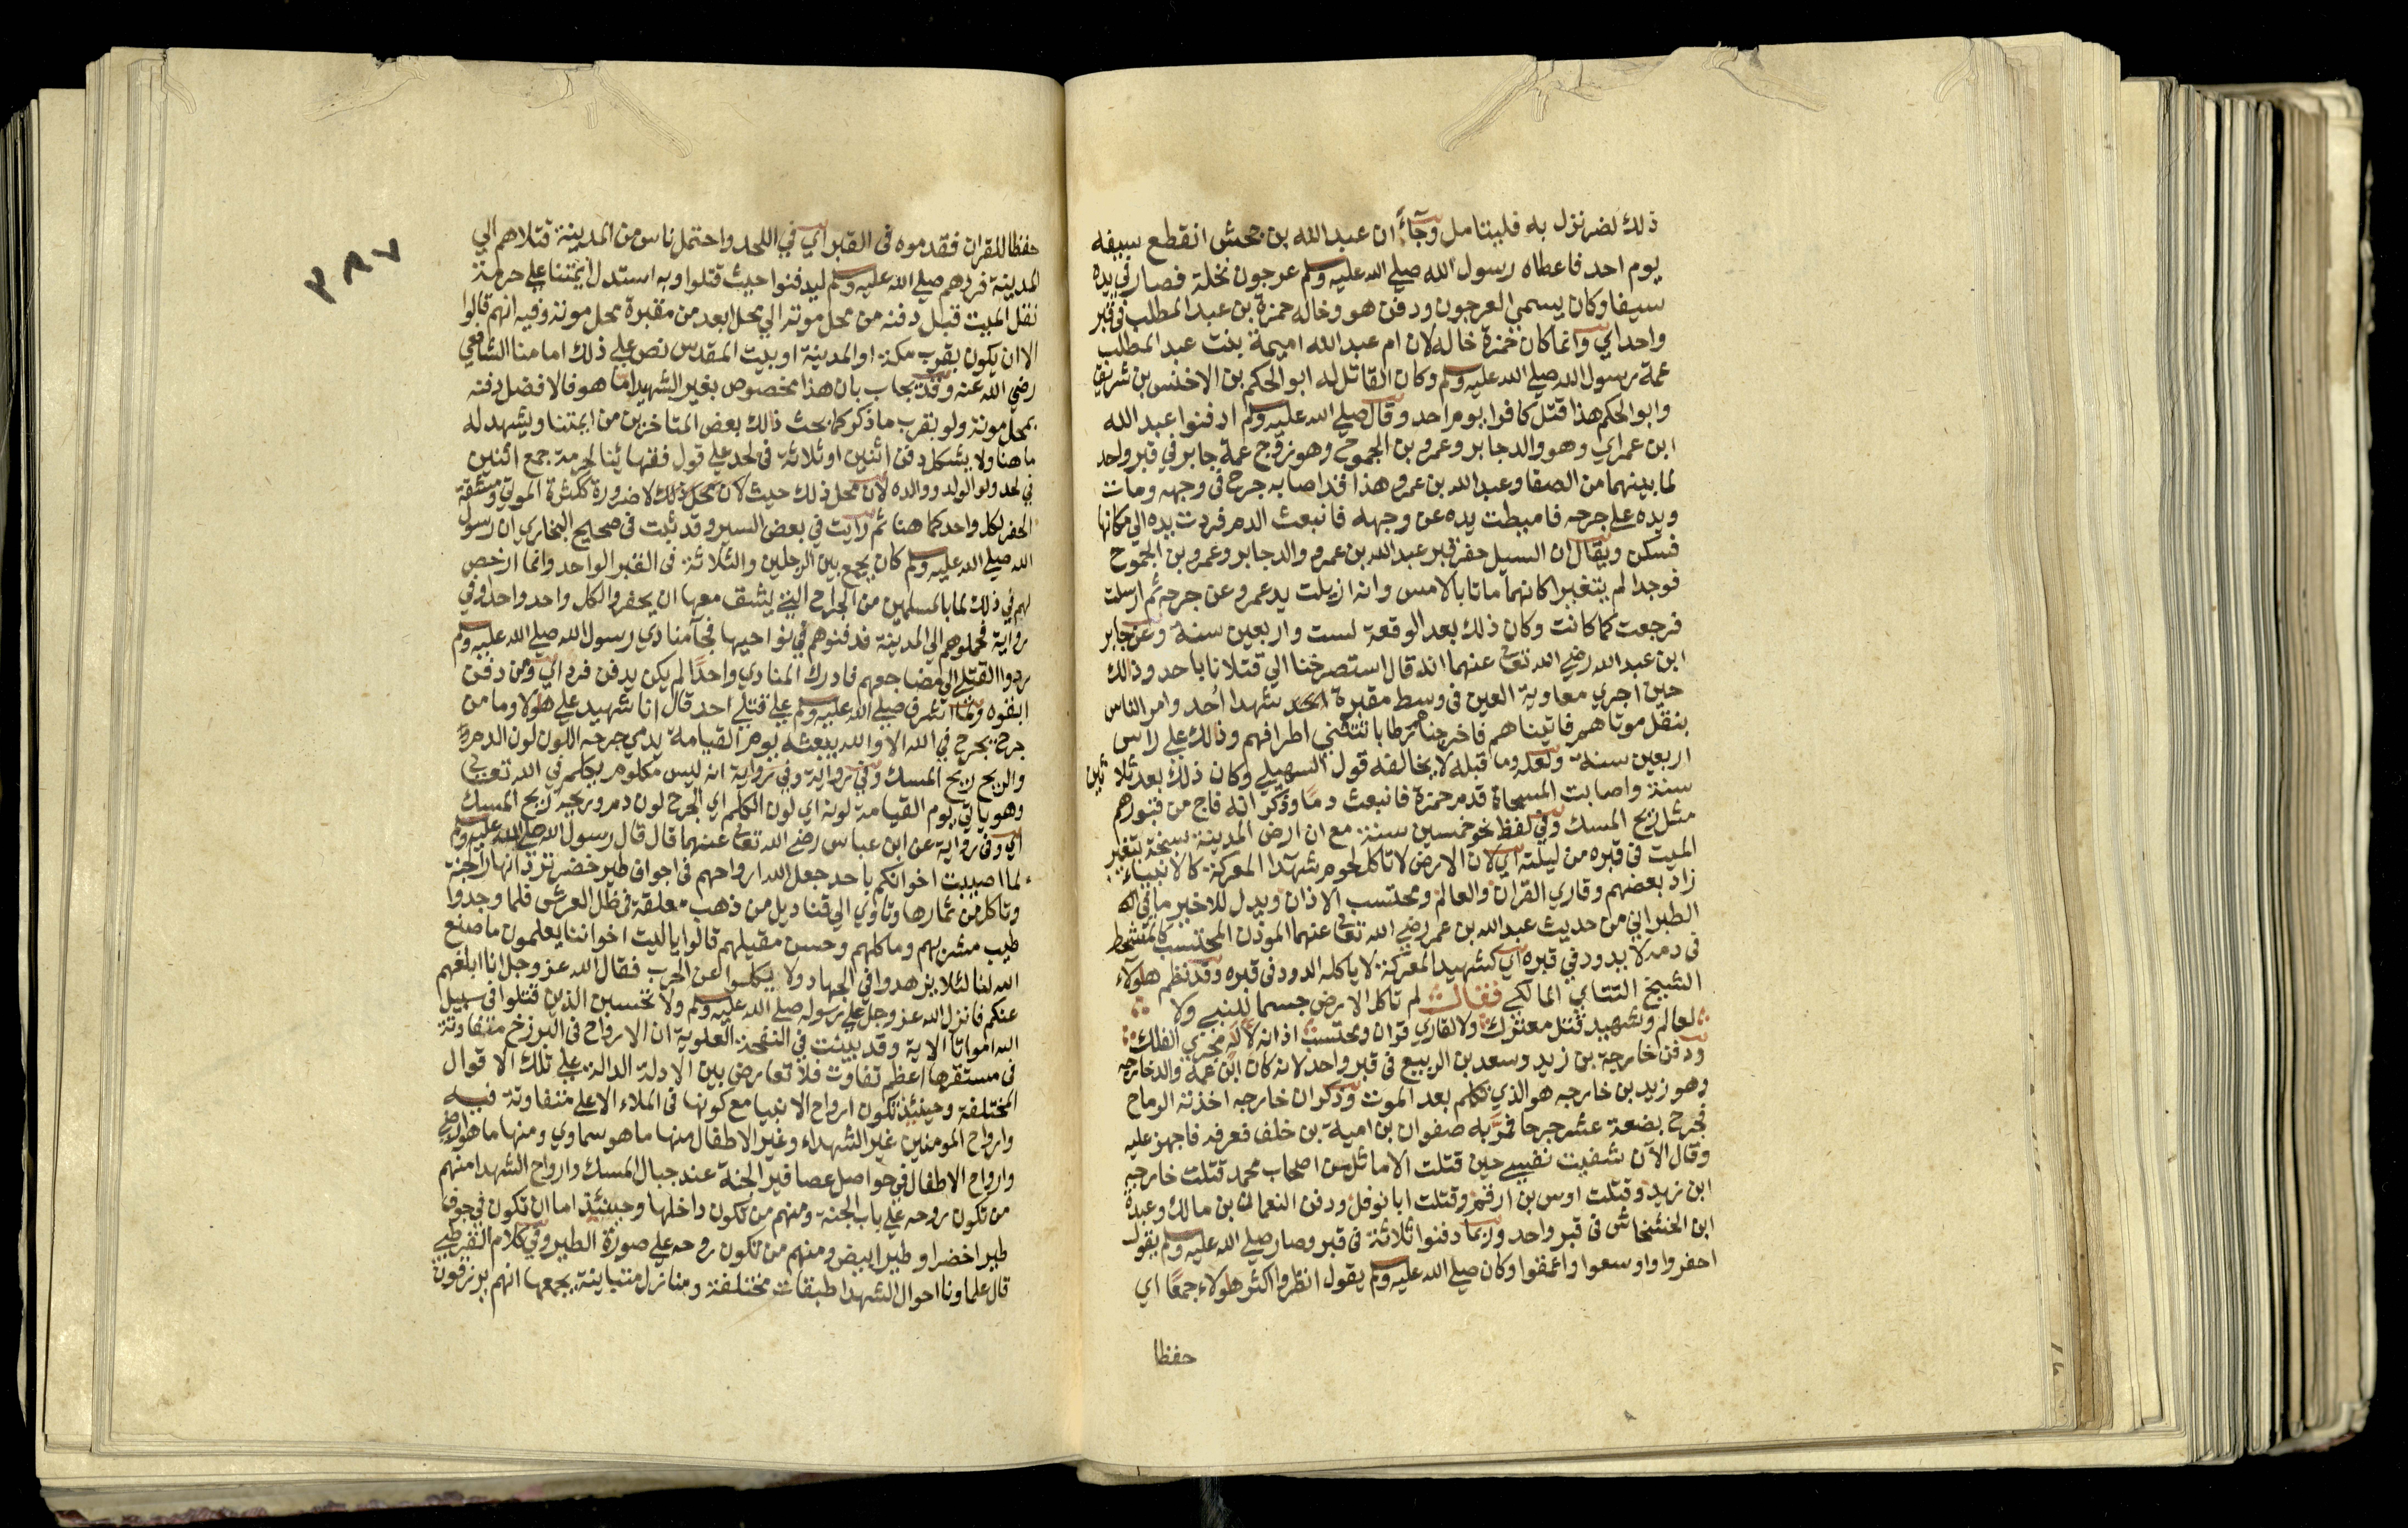 ذلك لضر نزل به فليتامل وجاء ان عبد الله بن جحش انقطع سيفه
يوم احد فاعطاه رسول الله صلى الله عليه وسلم عرجون نخلة فصار في يده
سيفا وكان يسمى العرجون ودفن هو وخاله حمزة بن عبد المطلب في قبر
واحد اي وانما كان حمزة خاله لان ام عبد الله اميمة بنت عبد المطلب
عمة رسول الله صلى الله عليه وسلم وكان القاتل له ابو الحكم بن الاخنس بن شريق
وابو الحكم هذا قتل كافرا يوم احد وقال صلى الله عليه وسلم ادفنوا عبد الله
ابن عمر اي وهو والد جابر وعمرو بن الجموح وهو زوج عمة جابر في قبر واحد
لما بينهما من الصفا وعبد الله بن عمرو هذا قد اصابه جرح في وجهه ومات
ويده على جرحه فاميطت يده عن وجهه فانبعث الدم فردت يده الى مكانها
فسكن ويقال ان السيل حفر قبر عبد الله بن عمرو والد جابر وعمرو بن الجموح
فوجدا لم يتغيرا كانهما ماتا بالامس وانه ازيلت يد عمرو عن جرحه ثم ارسلت
فرجعت كما كانت وكان ذلك بعد الوقعة لست واربعين سنة وعن جابر
ابن عبد الله رضي الله تعالى عنهما انه قال استصرخنا الى قتلانا باحد وذلك
حين اجري معاوية العين في وسط مقبرة شهدا احد وامر الناس
بنقل موتاهم فاتيناهم فاخرجناهم رطابا تتثنى اطرافهم وذلك على راس
اربعين سنة ولعله وما قبله لا يخالفه قول السهيلي وكان ذلك بعد ثلاثين
سنة واصابت المسحاة قدم حمزة فانبعث دما وذكر انه فاح من قبورهم
مثل ريح المسك وفي لفظ نحو خمسين سنة مع ان ارض المدينة سبخة يتغير
الميت في قبره من ليلته اي لان الارض لا تاكل لحوم شهدا المعركة كالانبياء
زاد بعضهم وقاري القران والعالم ومحتسب الاذان ويدل للاخير ما في
الطبراني من حديث عبد الله بن عمر رضي الله تعالى عنهما الموذن المحتسب كالمتشحط
في دمه لا يدود في قبره اي كشهيد المعركة لا ياكله الدود في قبره وقد نظم هولاء
الشيخ التتاي المالكي فقال لم تاكل الارض جسما للنبي ولا
لعالم وشهيد قتل معترك ولا لقاري قران ومحتسب اذانه لاله مجري الفلك
ودفن خارجة بن زيد وسعد بن الربيع في قبر واحد لانه كان ابن عمه والد خارجه
وهو زيد بن خارجه هو الذي تكلم بعد الموت وذكر ان خارجه اخذته الرماح
فجرح بضعة عشر جرحا فمر به صفوان بن امية بن خلف فعرفه فاجهز عليه
وقال الآن شفيت نفسي حين قتلت الاماثل من اصحاب محمد قتلت خارجه
ابن زيد وقتلت اوس بن ارقم وقتلت ابا نوفل ودفن النعمان بن مالك وعبدة
ابن الخشخاش في قبر واحد وربما دفنوا ثلاثة في قبر وصار صلى الله عليه وسلم يقول
احفروا واوسعوا واعمقوا وكان صلى الله عليه وسلم يقول انظروا اكثر هولاء جمعا اي
حفظا
٣٨٧
حفظا للقران فقدموه في القبر اي في اللحد واحتمل ناس من المدينة قتلاهم الى
المدينة فردهم صلى الله عليه وسلم ليدفنوا حيث قتلوا وبه استدل ايمتنا على حرمة
نقل الميت قبل دفنه من محل موته الى محل ابعد من مقبرة محل موته وفيه انهم قالوا
الا ان يكون بقرب مكة او المدينة او بيت المقدس نص على ذلك امامنا الشافعي
رضي الله عنه وقد يجاب بان هذا مخصوص بغير الشهيد اما هو فالافضل دفنه
بمحل موته ولو بقرب ما ذكر كما بحث ذلك بعض المتاخرين من ايمتنا ويشهد له
ما هنا ولا يشكل دفن اثنين او ثلاثة في لحد على قول فقهائنا لحرمة جمع اثنين
في لحد ولو الولد ووالده لان محل ذلك حيث لا ضرورة ككثرة الموتى ومشقة
الحفر لكل واحد كما هنا ثم رايت في بعض السير وقد ثبت في صحيح البخاري ان رسول
الله صلى الله عليه وسلم كان يجمع بين الرجلين والثلاثة في القبر الواحد وانما ارخص
لهم في ذلك لما بالمسلمين من الجراح التي يشق معها ان يحفروا لكل واحد واحد وفي
رواية فحملوهم الى المدينة فدفنوهم في نواحيها فجا منادي رسول الله صلى الله عليه وسلم
ردوا القتلى الى مضاجعهم فادرك المنادي واحدا لم يكن يدفن فرد اي ومن دفن
ابقوه ولما اشرف صلى الله عليه وسلم على قتلى احد قال انا شهيد على هولا وما من
جرح يجرح في الله الا والله يبعثه يوم القيامة يدمي جرحه اللون لون الدم
والريح ريح المسك وفي رواية وفي رواية انه ليس مكلوم يكلم في الله تعالى
وهو ياتي يوم القيامة لونه اي لون الكلم اي الجرح لون دم وريحه ريح المسك
اي وفي رواية عن ابن عباس رضي الله تعالى عنهما قال قال رسول الله صلى الله عليه وسلم
لما اصيبت اخوانكم باحد جعل الله ارواحهم في اجواف طير خضر ترد انهار الجنة
وتاكل من ثمارها وتاوي الى قناديل من ذهب معلقة في ظل العرش فلما وجدوا
طيب مشربهم وماكلهم وحسن مقيلهم قالوا يا ليت اخواننا يعلمون ما صنع
الله لنا لئلا يزهدوا في الجهاد ولا ينكلوا عن الحرب فقال الله عز وجل انا ابلغهم
عنكم فانزل الله عز وجل على رسوله صلى الله عليه وسلم ولا تحسبن الذين قتلوا في سبيل
الله امواتا الاية وقد بينت في النفحة العلوية ان الارواح في البرزخ متفاوتة
في مستقرها اعظم تفاوت فلا تعارض بين الادلة الدالة على تلك الاقوال
المختلفة وحينئذ تكون ارواح الانبيا مع كونها في الملاء الاعلى متفاوتة فيه
وارواح المومنين غير الشهداء وغير الاطفال منها ما هو سماوي ومنها ما هو ارضي
وارواح الاطفال في حواصل عصافير الجنة عند جبال المسك وارواح الشهدا منهم
من تكون روحه على باب الجنة ومنهم من تكون داخلها وحينئذ اما ان تكون في جوف
طير اخضر او طير ابيض ومنهم من تكون روحه على صورة الطير وفي كلام القرطبي
قال علماونا احوال الشهدا طبقات مختلفة ومنازل متباينة يجمعها انهم يرزقون